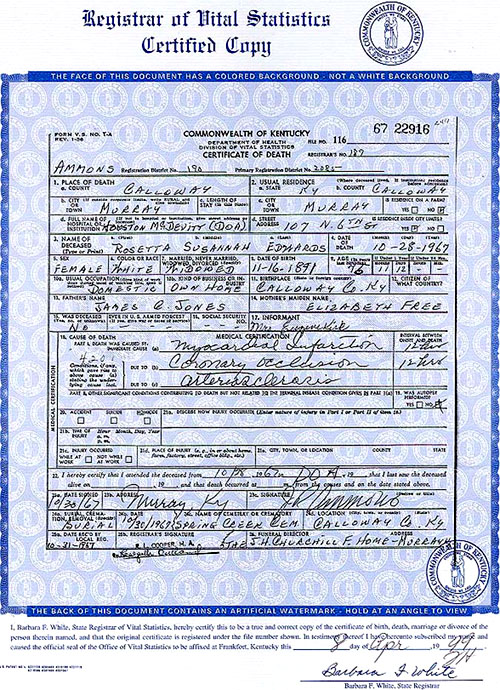 Registrar of Vital Statistics
Certified Copy
THE FACE OF THIS DOCUMENT HAS A COLORED BACKGROUND - NOT A WHITE BACKGROUND
FORM V.S. NO. 1-A
REV. 1-56
COMMONWEALTH OF KENTUCKY
DEPARTMENT OF HEALTH
DIVISION OF VITAL STATISTICS
CERTIFICATE OF DEATH
FILE NO. 116 67 22916
REGISTRAR'S NO. 187
AMMONS Registration District No. 190 Primary Registration District No. 2080
1. PLACE OF DEATH
a. COUNTY CALLOWAY
2. USUAL RESIDENCE
a. STATE KY b. COUNTY CALLOWAY
b. CITY OR TOWN MURRAY
c. LENGTH OF STAY
c. CITY OR TOWN MURRAY
IS RESIDENCE ON A FARM?
d. FULL NAME OF HOSPITAL HOUSTON McDEVITT (DOA)
d. STREET ADDRESS 107 N. 6TH ST
IS RESIDENCE INSIDE CITY LIMITS
YES NO
3. NAME OF DECEASED (Type or Print) ROSETTA SUSANNAH EDWARDS
4. DATE OF DEATH 10-28-1967
5. SEX FEMALE
6. COLOR OR RACE WHITE
7. MARRIED, NEVER MARRIED, WIDOWED, DIVORCED WIDOWED
8. DATE OF BIRTH 11-16-1891
9. AGE 11 12
10a. USUAL OCCUPATION DOMESTIC
10b. KIND OF BUSINESS OR INDUSTRY OWN HOME
11. BIRTHPLACE CALLOWAY CO. KY
12. CITIZEN OF WHAT COUNTRY?
13. FATHER'S NAME JAMES C. JONES
14. MOTHER'S MAIDEN NAME ELIZABETH FREE
15. WAS DECEASED EVER IN U.S. ARMED FORCES? NO
16. SOCIAL SECURITY NO.
17. INFORMANT Mrs Eugene
18. CAUSE OF DEATH
MEDICAL CERTIFICATION
INTERVAL BETWEEN ONSET AND DEATH
PART I. DEATH WAS CAUSED BY:
IMMEDIATE CAUSE (a) Myocardial Infarction 12 hrs
420
Conditions, if any, which gave rise to above cause (a) stating the underlying cause last.
DUE TO (b) Coronary occlusion 12 hrs
DUE TO (c) Arteriosclerosis
PART II. OTHER SIGNIFICANT CONDITIONS CONTRIBUTING TO DEATH BUT NOT RELATED TO THE TERMINAL DISEASE CONDITION GIVEN IN PART I(a)
19. WAS AUTOPSY PERFORMED?
YES NO
20a. ACCIDENT SUICIDE HOMICIDE
20b. DESCRIBE HOW INJURY OCCURRED (Enter nature of injury in Part I or Part II of item 18.)
TIME OF INJURY Hour Month, Day, Year
INJURY OCCURRED WHILE AT WORK NOT WHILE AT WORK
PLACE OF INJURY (e.g., in or about home, farm, factory, street, office bldg., etc.)
CITY, TOWN, OR LOCATION COUNTY STATE
22. I hereby certify that I attended the deceased from 1967, to DOA, 19 , that I last saw the deceased
alive on , 19 , and that death occurred at from the causes and on the date stated above.
DATE SIGNED 10/30/67
ADDRESS Murray Ky
SIGNATURE
BURIAL, CREMATION, REMOVAL BURIAL
DATE 10/30/1967
NAME OF CEMETERY OR CREMATORY SPRING CREEK CEM.
LOCATION CALLOWAY CO. KY
DATE REC'D BY LOCAL REG. 10-31-1967
REGISTRAR'S SIGNATURE R. L. COOPER, M. D.
FUNERAL DIRECTOR ADDRESS J.H. CHURCHILL F. HOME - MURRAY
THE BACK OF THIS DOCUMENT CONTAINS AN ARTIFICIAL WATERMARK - HOLD AT AN ANGLE TO VIEW
I, Barbara F. White, State Registrar of Vital Statistics, hereby certify this to be a true and correct copy of the certificate of birth, death, marriage or divorce of the
person therein named, and that the original certificate is registered under the file number shown. In testimony thereof I have hereunto subscribed my name and
caused the official seal of the Office of Vital Statistics to be affixed at Frankfort, Kentucky this 8 day of Apr, 1999
Barbara F. White
Barbara F. White, State Registrar